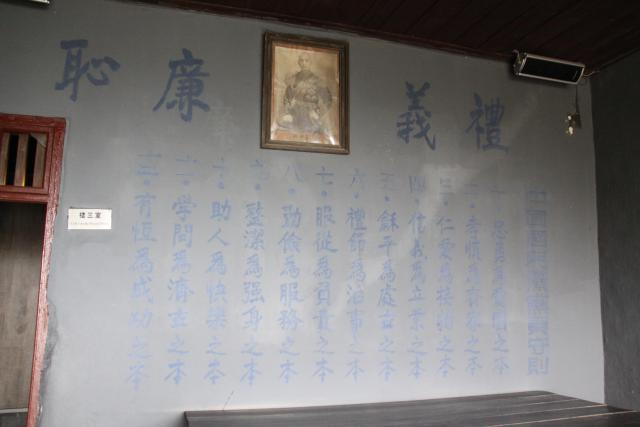 禮義廉恥
中國國民黨黨員守則
一。忠勇爲愛國之本
二。孝順爲齊家之本
三。仁愛爲接物之本
四。信義爲立業之本
五。龢平爲處世之本
六。禮節爲治事之本
七。服從爲負責之本
八。勤儉爲服務之本
九。整潔爲强身之本
十。助人爲快樂之本
十一。學問爲濟世之本
十二。有恆爲成功之本
樓三室